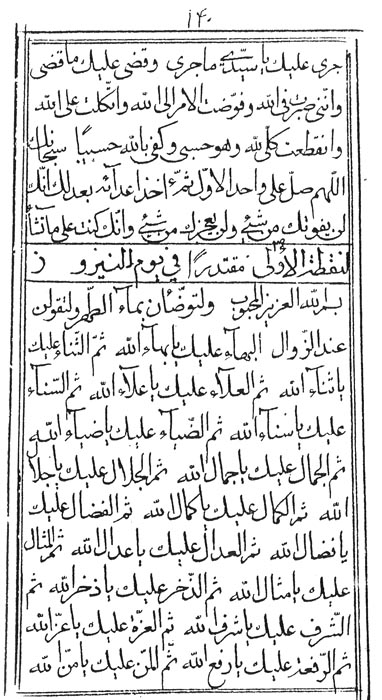 ۱۴۰
جری علیك یا سیّدی ما جری وقضی علیك ما قضی
وانّنی صبرت فی الله وفوّضت الامر الی الله واتّکلت علی الله
وانقطعت کلّی لله وهو حسبی وکفی بالله حسیبًا سبحانك
اللهم صلّ علی واحد الاوّل ثم خذ اعدآئه بعدلك انّك
لن یفوتك من شیئ ولن یعجزك من شیئ وانّك کنت علی ما تشآء
مقتدرًا لنقطة الأولی فی یوم النیروز
بسم الله العزیز المحبوب ولتوضّأن بمآء المطهر ولتقولن
عند الزّوال البهآء علیك یا بهآء الله ثم الثنآء علیك
یا ثنآء الله ثم العلآء علیك یا علآء الله ثم السّنآء
علیك یا سنآء الله ثم الضّیآء علیك یا ضیآء الله
ثم الجمال علیك یا جمال الله ثم الجلال علیك یا جلال
الله ثم الکمال علیك یا کمال الله ثم الفضال علیك
یا فضال الله ثم العدال علیك یا عدال الله ثم المثال
علیك یا مثال الله ثم الذّخر علیك یا ذخر الله ثم
الشّرف علیك یا شرف الله ثم العزّة علیك یا عزّ الله
ثم الرفعة علیك یا رفع الله ثم المنّ علیك یا منّ الله